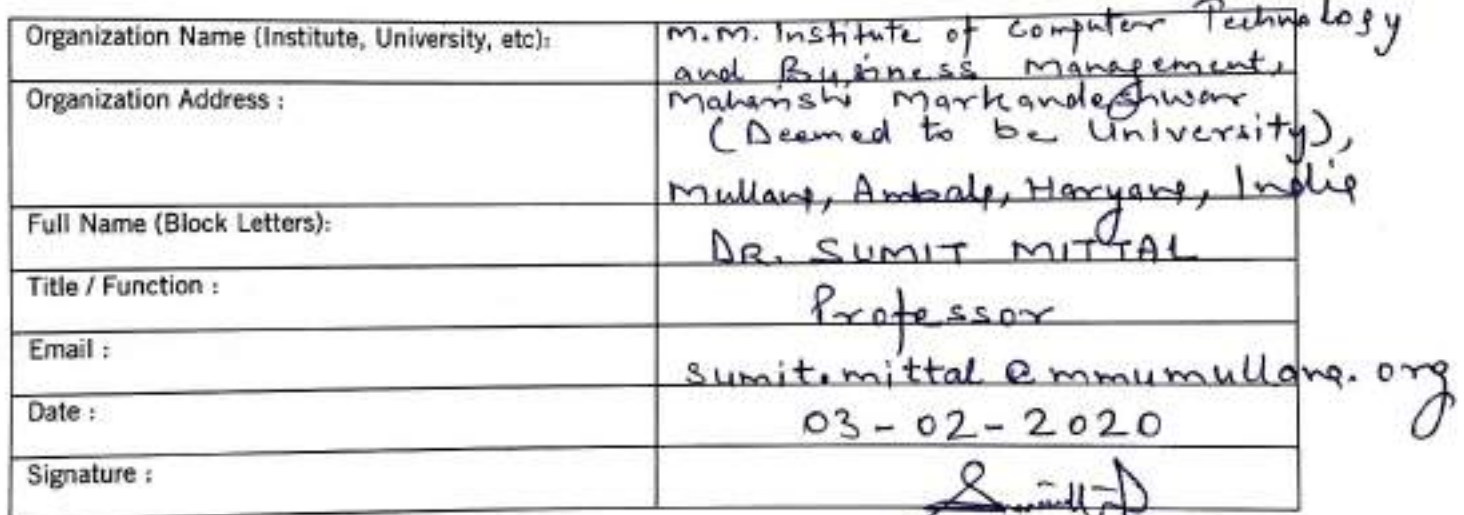 Organization Name (Institute, University, etc): M.M. Institute of Computer Technology
and Business Management,
Organization Address : Maharishi Markandeshwar
(Deemed to be University),
Mullana, Ambala, Haryana, India
Full Name (Block Letters): DR. SUMIT MITTAL
Title / Function : Professor
Email : sumit.mittal@mmumullana.org
Date : 03-02-2020
Signature :